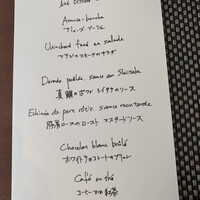 Amuse-bouche
アミューズ・ブーシュ
fumé en salade
のサラダ
Daurade poêlée, sauce au Shiitake
真鯛のポワレ シイタケのソース
Echinée de porc rôtie, sauce moutarde
豚肩ロースのロースト マスタードソース
Chocolat blanc brûlé
ホワイトチョコレートのブリュレ
Café ou thé
コーヒー又は紅茶